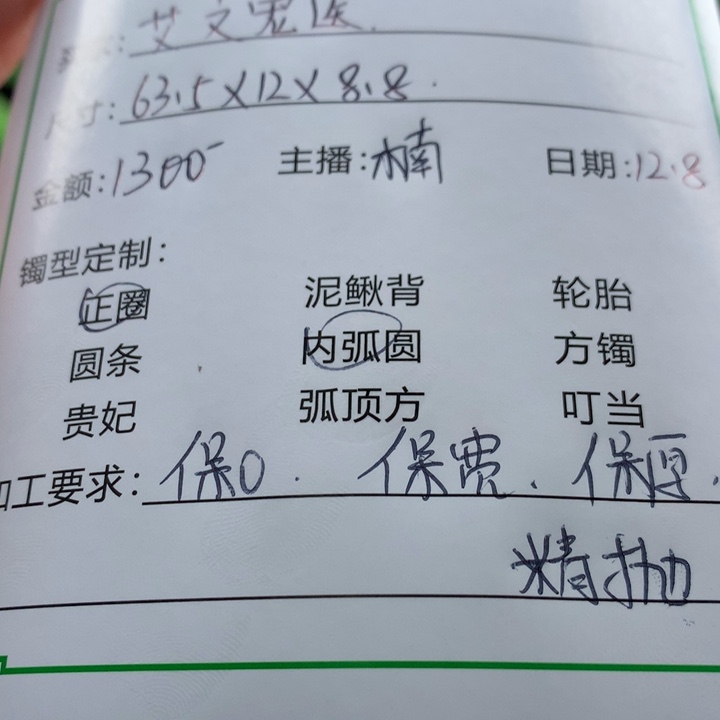 艾文宽版
尺寸:63.5×12×8.8.
金额:1300- 主播:楠 日期:12.8
镯型定制:
正圈 泥鳅背 轮胎
圆条 内弧圆 方镯
贵妃 弧顶方 叮当
加工要求:保0. 保宽. 保厚.
精抛